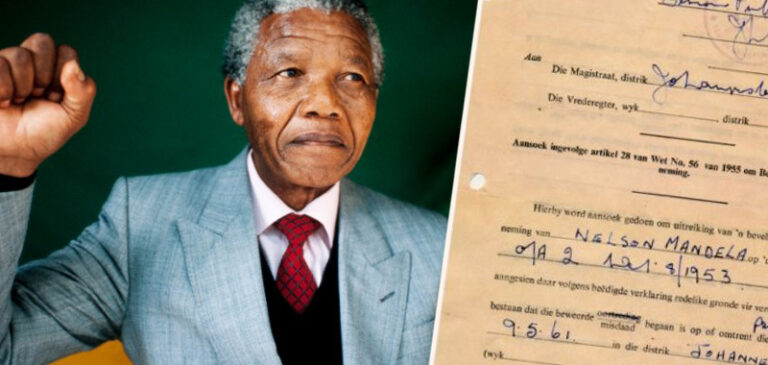 Aan
Die Magistraat, distrik Johannesb
Die Vrederegter, wyk , distrik
Aansoek ingevolge artikel 28 van Wet No. 56 van 1955 om Be
neming.
Hierby word aansoek gedoen om uitreiking van 'n bevel
neming van NELSON MANDELA op 'n
8/1953
aangesien daar volgens beëdigde verklaring redelike gronde vir ver
bestaan dat die beweerde oortreding begaan is op of omtrent die
misdaad
9.5.61. in die distrik JOHANNE
(wyk